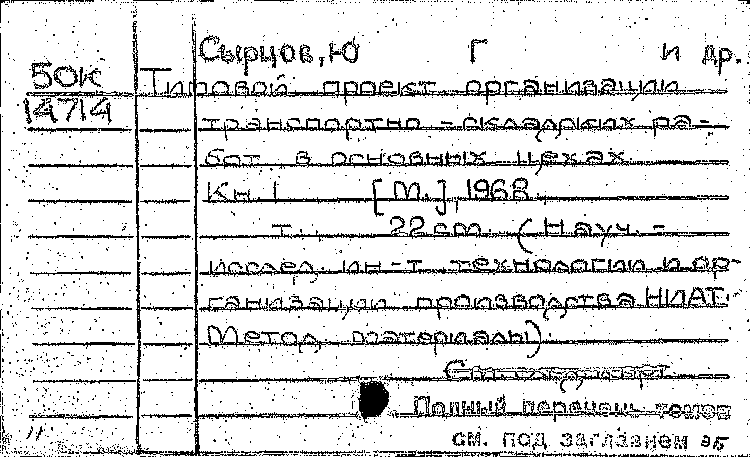 Сырцов, Ю Г и др.
50к
14714
Типовой проект организации
транспортно-складских ра-
бот в основных цехах.
Кн. 1 [М.], 1968.
т. 22 см. (Науч.-
исслед. ин-т технологии и ор-
ганизации производства НИАТ.
Метод. материалы).
Полный перечень томов
см. под заглавием